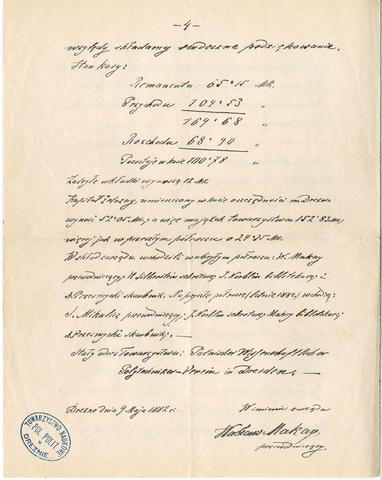 — 4 —
względy składamy serdeczne podziękowanie.
Stan kasy:
Remanentu 65·15 Mk.
Przychodu 104·53 „
169·68 „
Rozchodu 68·90 „
Pozostaje w kasie 100·78 „
Zaległe wkładki wynoszą 12 Mk.
Kapitał żelazny, umieszczony w kasie oszczędności m. Drezna
wynosi 52·05 Mk.; a więc majątek Towarzystwa 152·83 Mk,
więcej jak w przeszłym półroczu o 24·75 Mk.
W skład zarządu wchodzili w ubiegłym półroczu: W. Makay
przewodniczący, H. Silberstein sekretarz, J. Koeblin bibliotekarz i
A. Przesmycki skarbnik. Na przyszłe półrocze (letnie 1882) wchodzą:
J. Mikulicz, przewodniczący; J. Koeblin sekretarz; Makay bibliotekarz;
A. Przesmycki skarbnik. —
Stały adres Towarzystwa: Polnischer Wissenschaftlicher
Polytechniker-Verein in Dresden. —
Drezno dnia 9 Maja 1882 r.
W imieniu zarządu
Wacław Makay
przewodniczący.
TOWARZYSTWO NAUKOWE
POL. POLIT.
w
DREZNIE